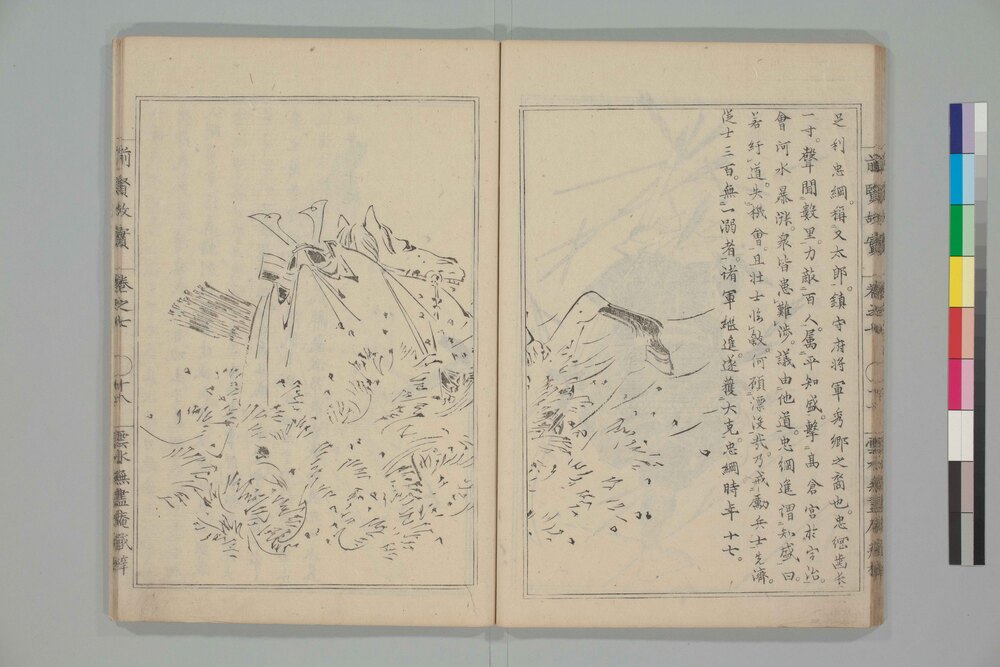 足利忠綱稱又太郎。鎮守府将軍秀郷之裔也。忠綱齒長
一寸。聲聞數里。力敵百人。属平知盛。撃高倉宮於宇治。
會河水暴漲。衆皆患難渉。議由他道。忠綱進謂知盛曰。
若紆道。失機會。且壮士臨敵。何顧漂没哉。乃戒勵兵士先濟。
從士三百。無一溺者。諸軍継進。遂獲大克。忠綱時年十七。
前賢故實
卷之七
十八
雲水無盡庵藏梓